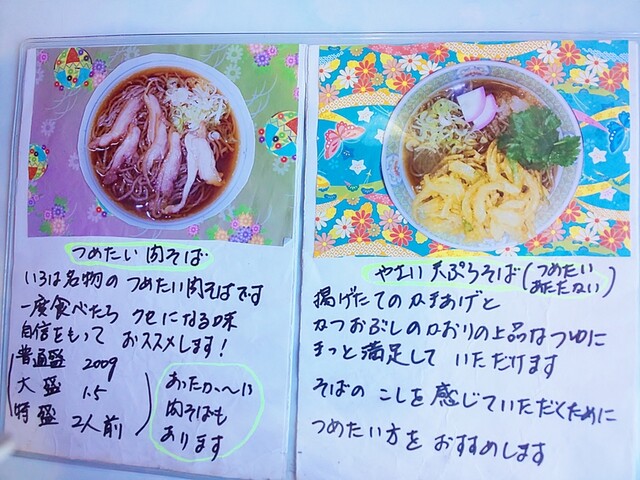 つめたい肉そば
いろは名物のつめたい肉そばです
一度食べたら クセになる味
自信をもって おススメします!
普通盛 200g
大盛 1.5
特盛 2人前
あったか〜い
肉そばも
あります
やさい天ぷらそば(つめたい
あたたかい)
揚げたてのかきあげと
かつおぶしのかおりの上品なつゆに
きっと満足して いただけます
そばの こしを感じていただくために
つめたい方を おすすめします